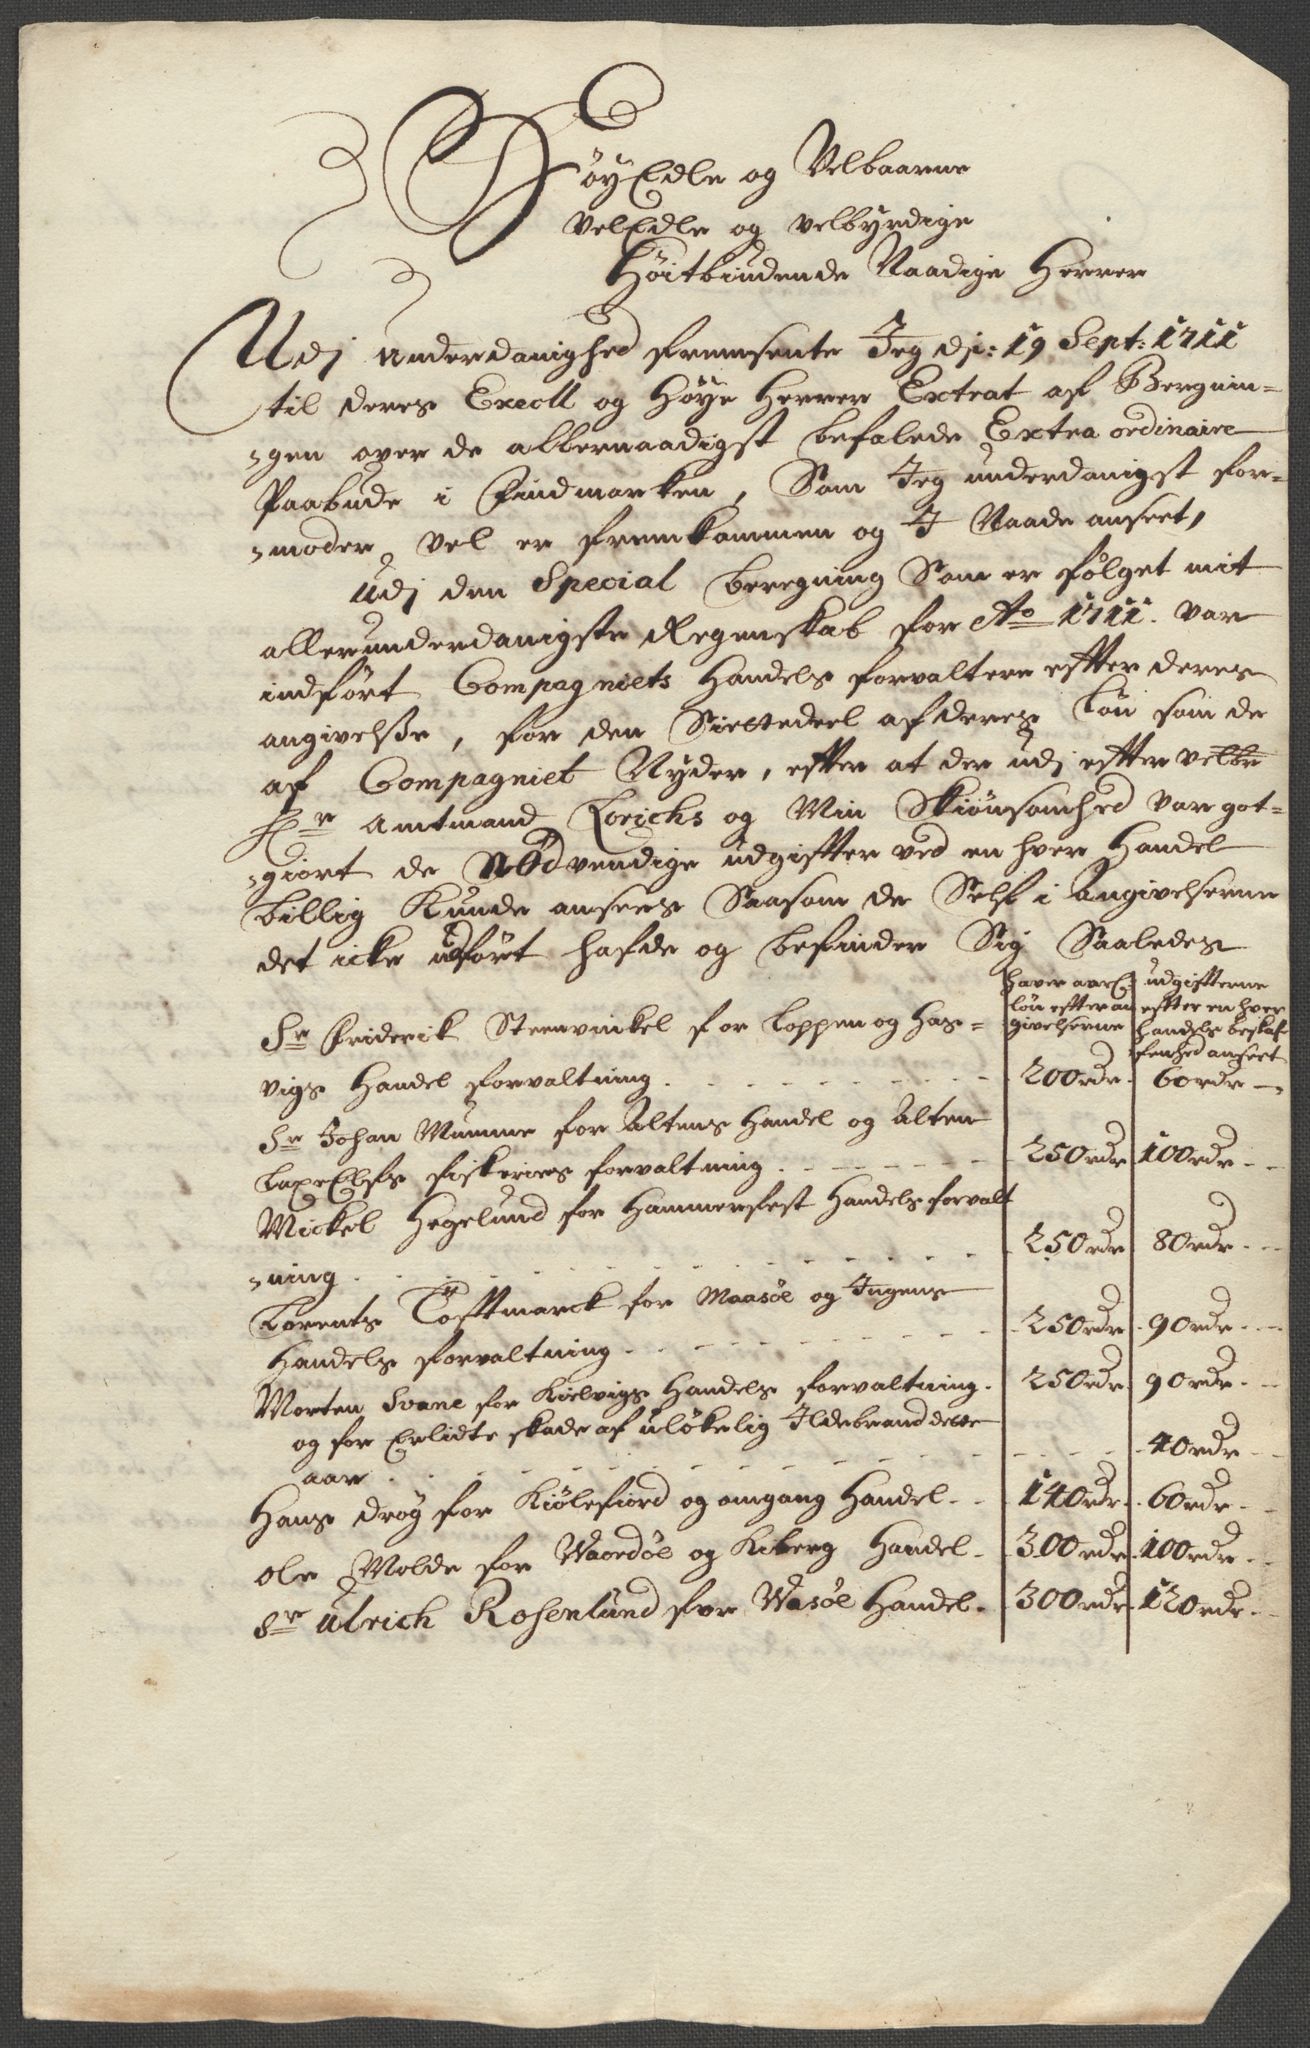 HøyEdle og Velbaarne
VelEdle og velbyrdige
Høitbiudende Naadige Herrer
Udj underdanighed fremsente Jeg dj: 19 Sept: 1711
til deres Excell og Høye Herrer Extrat af Beregnin=
=gen over de allernaadigst befalede Extra ordinaire
Paabude i Findmarken, Som Jeg underdanigst for=
=moder, vel er fremkommen og I Naade anseet,
Udj den Special beregning Som er følget mit
allerunderdanigste Regenskab for Ao 1711. var
indført Compagniets Handels forvaltere efter deres
angivelsse, for den Siettedeel af deres Løn som de
af Compagniet Nyder, efter at der udj efter velbr
Hr Amtmand Lorichs og Min Skiønsomhed var got=
=giort de Nødvendige udgifter ved en hver Handel
billig Kunde ansees Saasom de Self i Angivelserne
det icke udført hafde og befinder Sig Saaledes
haver aarl: løn efter angivelserne
udgifterne efter en hver handels beskaffenhed anseet
Sr Friderik Steenvinkel for Loppen og Has=
vigs Handel forvaltning . . . 200 rdr. 60 rdr
Sr Johan Mumme for Altens Handel og Alten
LaxeElfs fiskeries forvaltning . . . 250 rdr 100 rdr
Mickel Hegelund for Hammerfest Handels forvalt
=ning . . . 250 rdr 80 rdr
Lorents Tofftmarck for Maasøe og Ingens
Handels forvaltning . . . 250 rdr 90 rdr
Morten Svane for Kielvigs Handels forvaltning. 250 rdr. 90 rdr.
og for Erlidte skade af uløkelig Ildebrand dette
aar . . . 40 rdr
Hans Drøg for Kiølefiord og omgang Handel . . 140 rdr. 60 rdr.
Ole Molde for Waardøe og Kiberg Handel . 300 rdr. 100 rdr
Sr Ulrich Rosenlund for Wasøe Handel. 300 rdr 120 rdr